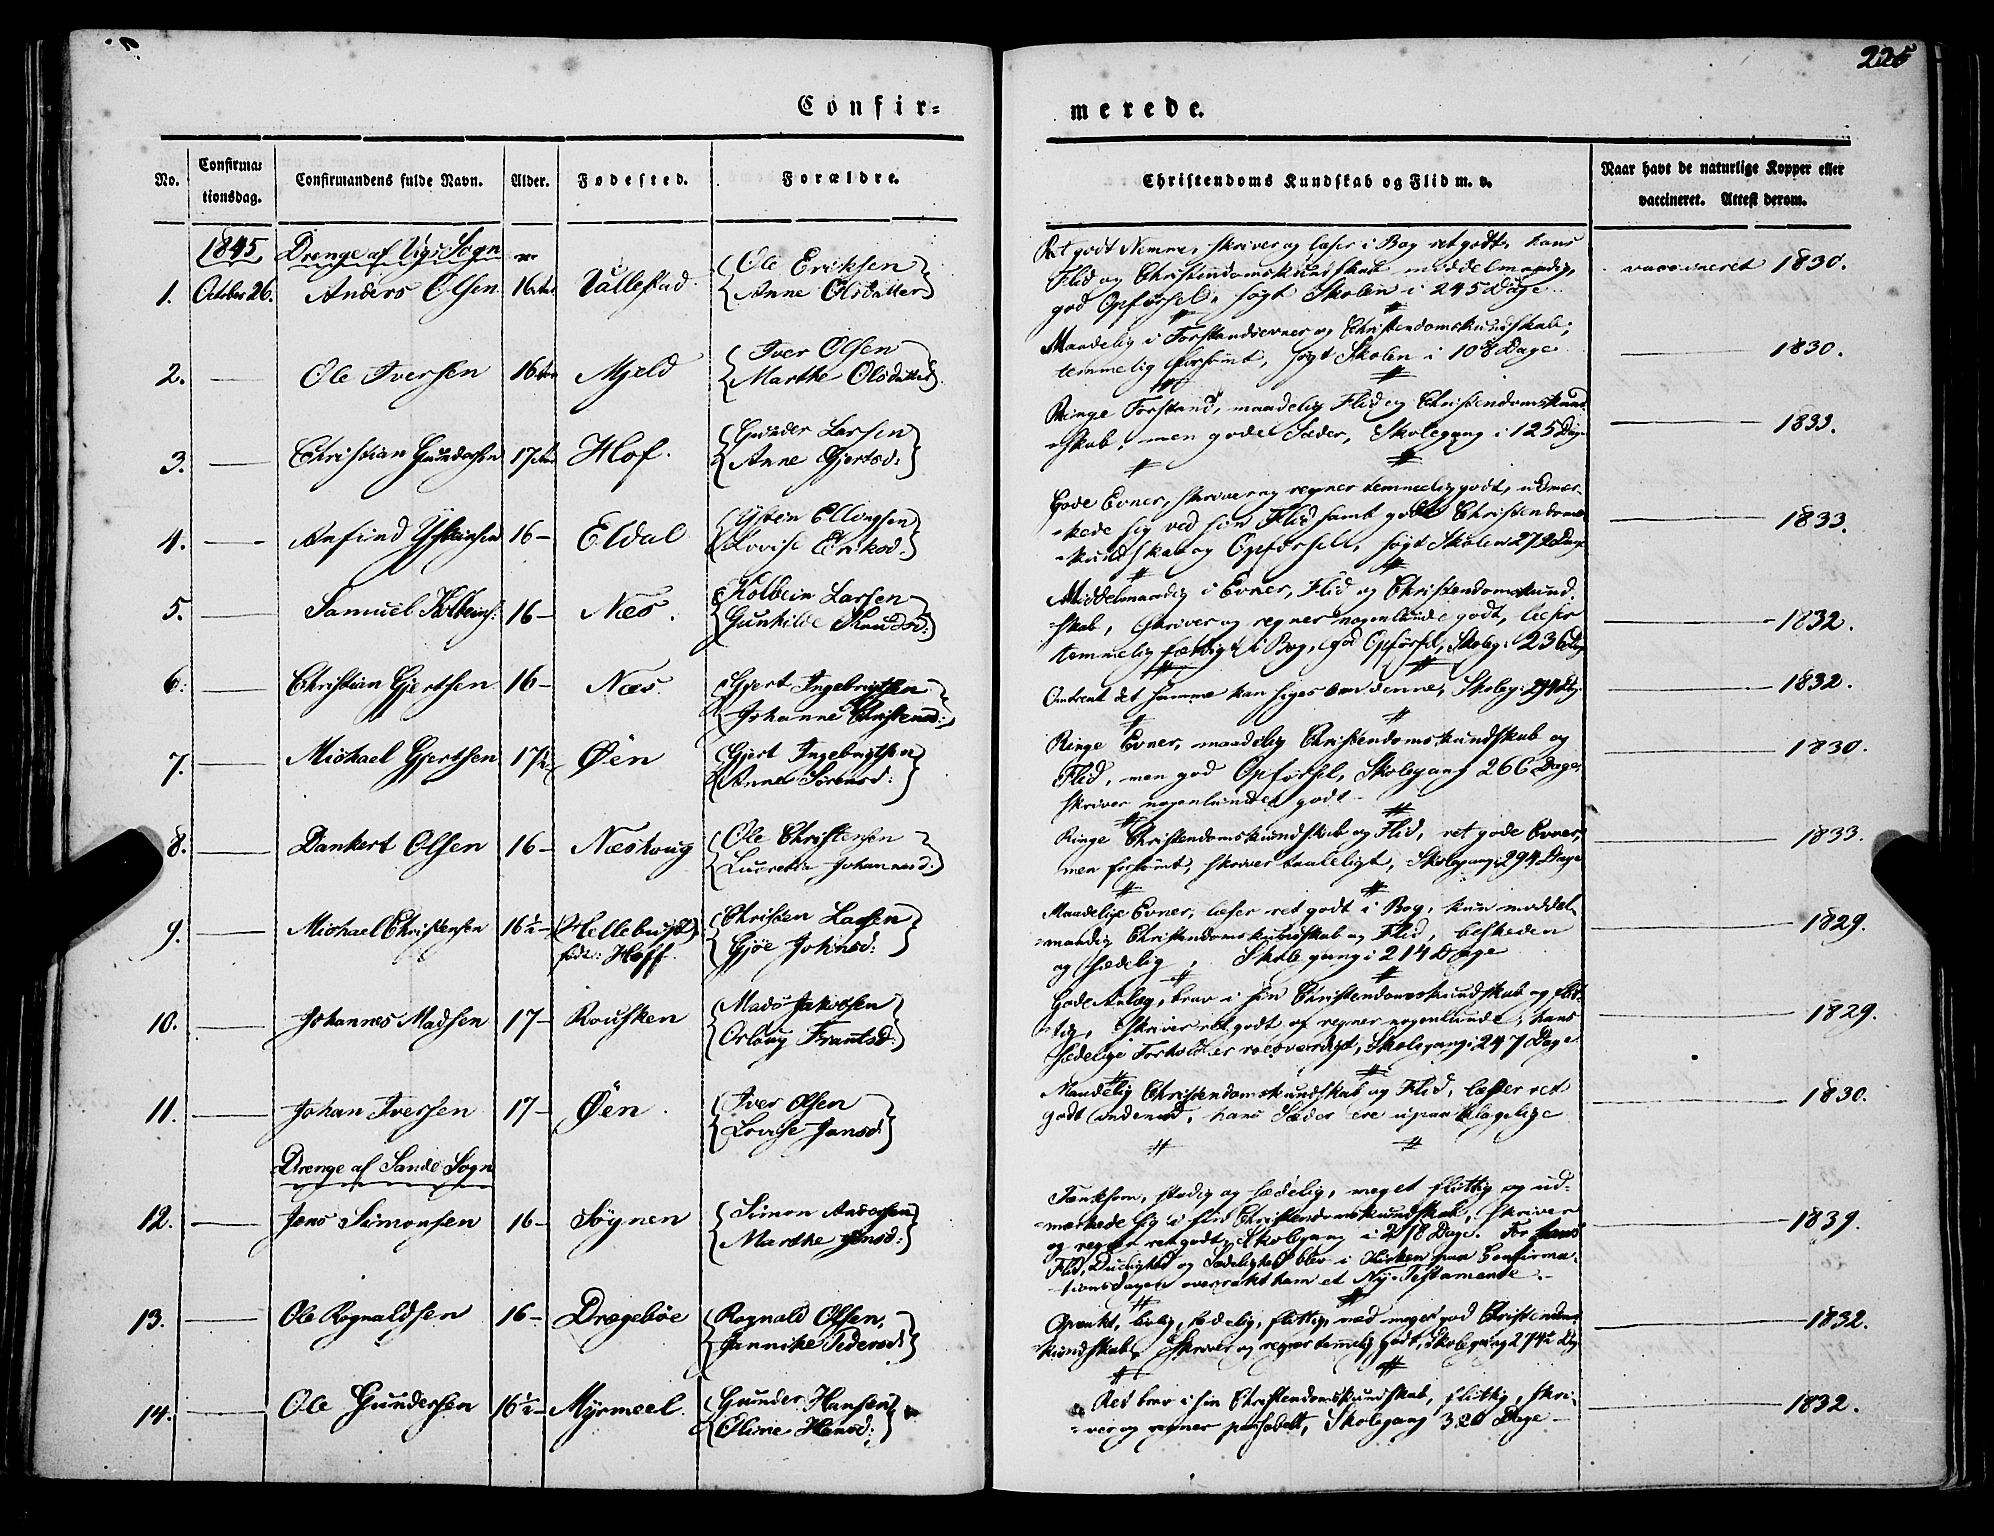 225
Confir=
merede.
No.
Confirma=
tionsdag.
Confirmandens fulde Navn.
Alder.
Fødested.
Forældre.
Christendoms Kundskab og Flid m. v.
Naar havt de naturlige Kopper eller
vaccineret. Attest derom.
1845
Drenge af Vigs Sogn
1. October 26. Anders Olsen 16 Vallestad
Ole Eriksen
Anne Olsdatter
Ret godt Nemme, skriver og læser i Bog ret godt, hans
Flid og Christendomskundskab middelmaadig,
god Opførsel, søgt Skolen i 245 Dage
vaccineret 1830.
2. — Ole Iversen 16 Mjeld
Iver Olsen
Marthe Olsdatter
Maadelig i Forstandsevner og Christendomskundskab,
temmelig forsømt, søgt Skolen i 108 Dage
— 1830.
3. — Christian Gundersen 17 Hof.
Gunder Larsen
Anne Gjertsd:
Ringe Forstand, maadelig Flid og Christendomskund=
=skab, men gode Sæder, Skolegang i 125 Dag
— 1833.
4. — Anfind Ysteinsen 16 — Eldal
Ystein Ellingsen
Lovise Eriksd:
Gode Evner, skriver og regner temmelig godt, udmær=
=kede sig ved sin Flid samt gode Christendoms=
=kundskab og Opførsel, søgt Skolen 272 Dage
— 1833.
5. — Samuel Kolbeins: 16 — Næs.
Kolbein Larsen
Gunhilde Knudsd:
Middelmaadig i Evner, Flid og Christendomskund=
=skab, skriver og regner nogenlunde godt, læser
temmelig færdig i Bog, god Opførsel, Skoleg: 236 Dag
— 1832.
6. — Christian Gjertsen 16 — Næs.
Gjert Ingebrigtsen
Johanne Christensd:
Omtrent det samme kan siges om denne, Skoleg: 294 Dg.
— 1832.
7. — Michael Gjertsen 17½ Øen
Gjert Ingebrigtsen
Anne Sørensd:
Ringe Evner, maadelig Christendomskundskab og
Flid, men god Opførsel, Skolegang 266 Dage,
skriver nogenlunde godt
— 1830.
8. — Dankert Olsen 16 — Næshoug
Ole Christensen
Lucretia Johannesd:
Ringe Christendomskundskab og Flid, ret gode Evner,
men forsømt, skriver taaleligt, Skolegang: 294 Dage
— 1833.
9. — Michael Christensen 16½ — (Hellebust)
født: Hoff.
Christen Larsen
Gjøe Johnsd:
Maadelige Evner, læser ret godt i Bog, kun middel=
=maadig Christendomskundskab og Flid, beskeden
og sædelig, Skolegang i 214 Dage
— 1829.
10. — Johannes Madsen 17 — Rousken
Mads Jakobsen
Orloug Frantsd:
Gode Anlæg, brav i sin Christendomskundskab og flit=
=tig, skriver ret godt og regner nogenlunde, hans
sædelige Forhold er roesværdigt, Skolegang: 247 Dage
— 1829.
11. — Johan Iversen 17 — Øen.
Iver Olsen
Lovise Jonsd:
Maadelig Christendomskundskab og Flid, læser ret
godt indenad, hans Sæder ere upaaklagelige
— 1830.
Drenge af Sande Sogn
12. — Jens Simonsen 16 — Søgnen
Simon Andersen
Marthe Jensd:
Tænksom, stadig og sædelig, meget flittig og ud=
=mærkede sig i sin Christendomskundskab, skriver
og regner ret godt, Skolegang i 278 Dage. For hans
Flid, Duelighed og Sædelighed blev i Kirken paa Confirma=
=tionsdagen overrakt ham et Ny-Testamente.
— 1839.
13. — Ole Rognaldsen 16 — Drægebøe
Rognald Olsen,
Jannike Pedersd:
Opvakt, rolig, sædelig, flittig, med meget god Christendoms=
kundskab, Skriver og regner temmelig godt, Skolegang 274½ Dag
— 1832.
14. — Ole Gundersen 16½ — Myrmeel.
Gunder Hansen
Oline Hansd:
Ret brav i sin Christendomskundskab, flittig, skri=
=ver og regner passabelt, Skolegang 320 Dage —
— 1832.